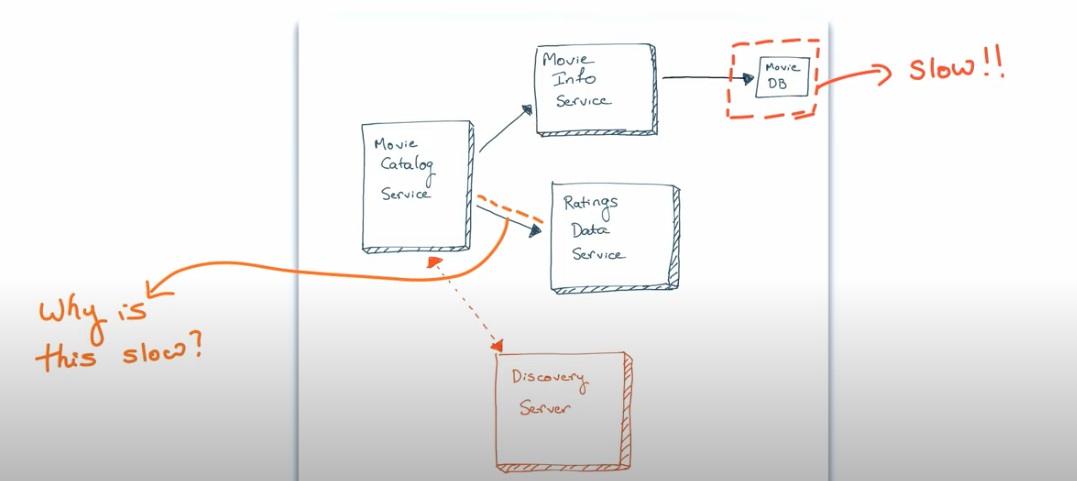 Movie
Info
Service
Movie
DB
Slow!!
Movie
Catalog
Service
Ratings
Data
Service
Why is
this slow?
Discovery
Server